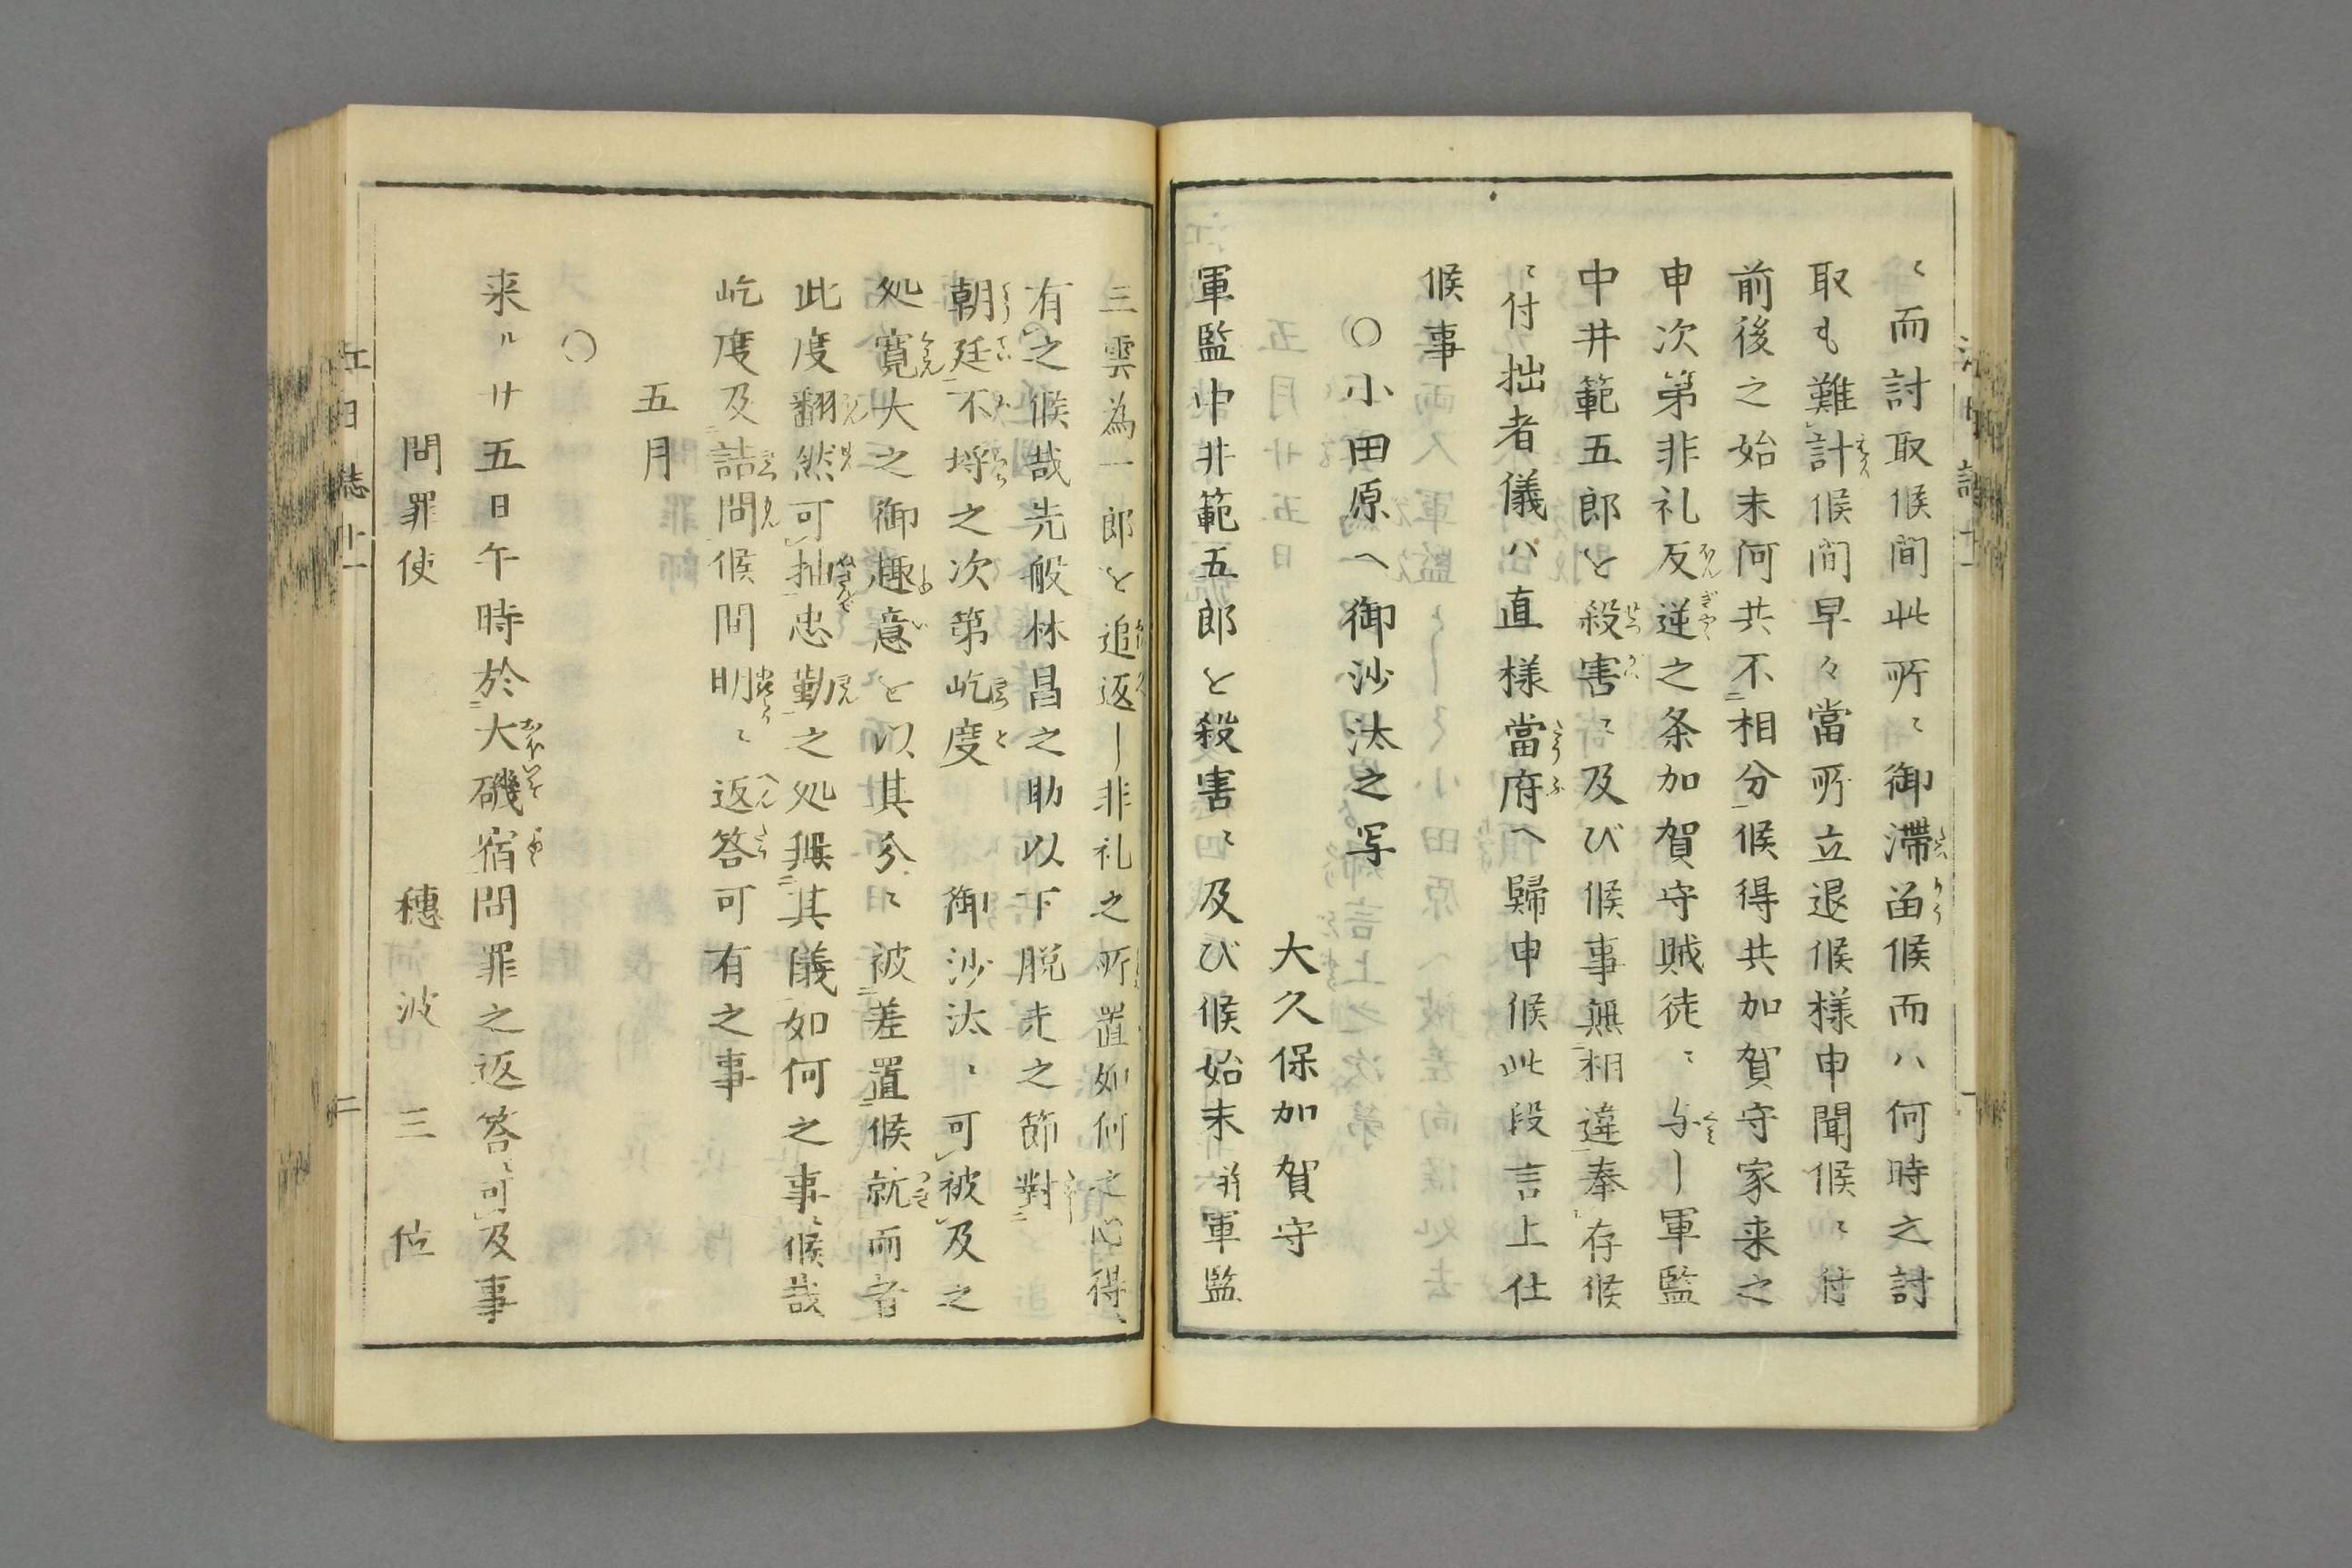 ニ而討取候間此所ニ御滞留候而ハ何時之討
取も難計候間早々當所立退候様申聞候ニ付
前後之始末何共不相分候得共加賀守家来之
申次第非礼反逆之条加賀守賊徒ニ与し軍監
中井範五郎を殺害ニ及び候事無相違奉存候
ニ付拙者儀ハ直様當府へ歸申候此段言上仕
候事
〇小田原へ御沙汰之写
大久保加賀守
軍監中井範五郎を殺害ニ及び候始末并軍監
三雲為一郎を追返し非礼之所置如何之心得ニ
有之候哉先般林昌之助以下脱走之節對
朝廷不埒之次第屹度 御沙汰ニ可被及之
処寛大之御趣意を以其分ニ被差置候就而者
此度翻然可抽忠勤之処無其儀如何之事ニ候哉
屹度及詰問候間明ニ返答可有之事
五月
〇
来ル廿五日午時於大磯宿問罪之返答ニ可及事
問罪使 穂波三位
江日誌十一 二